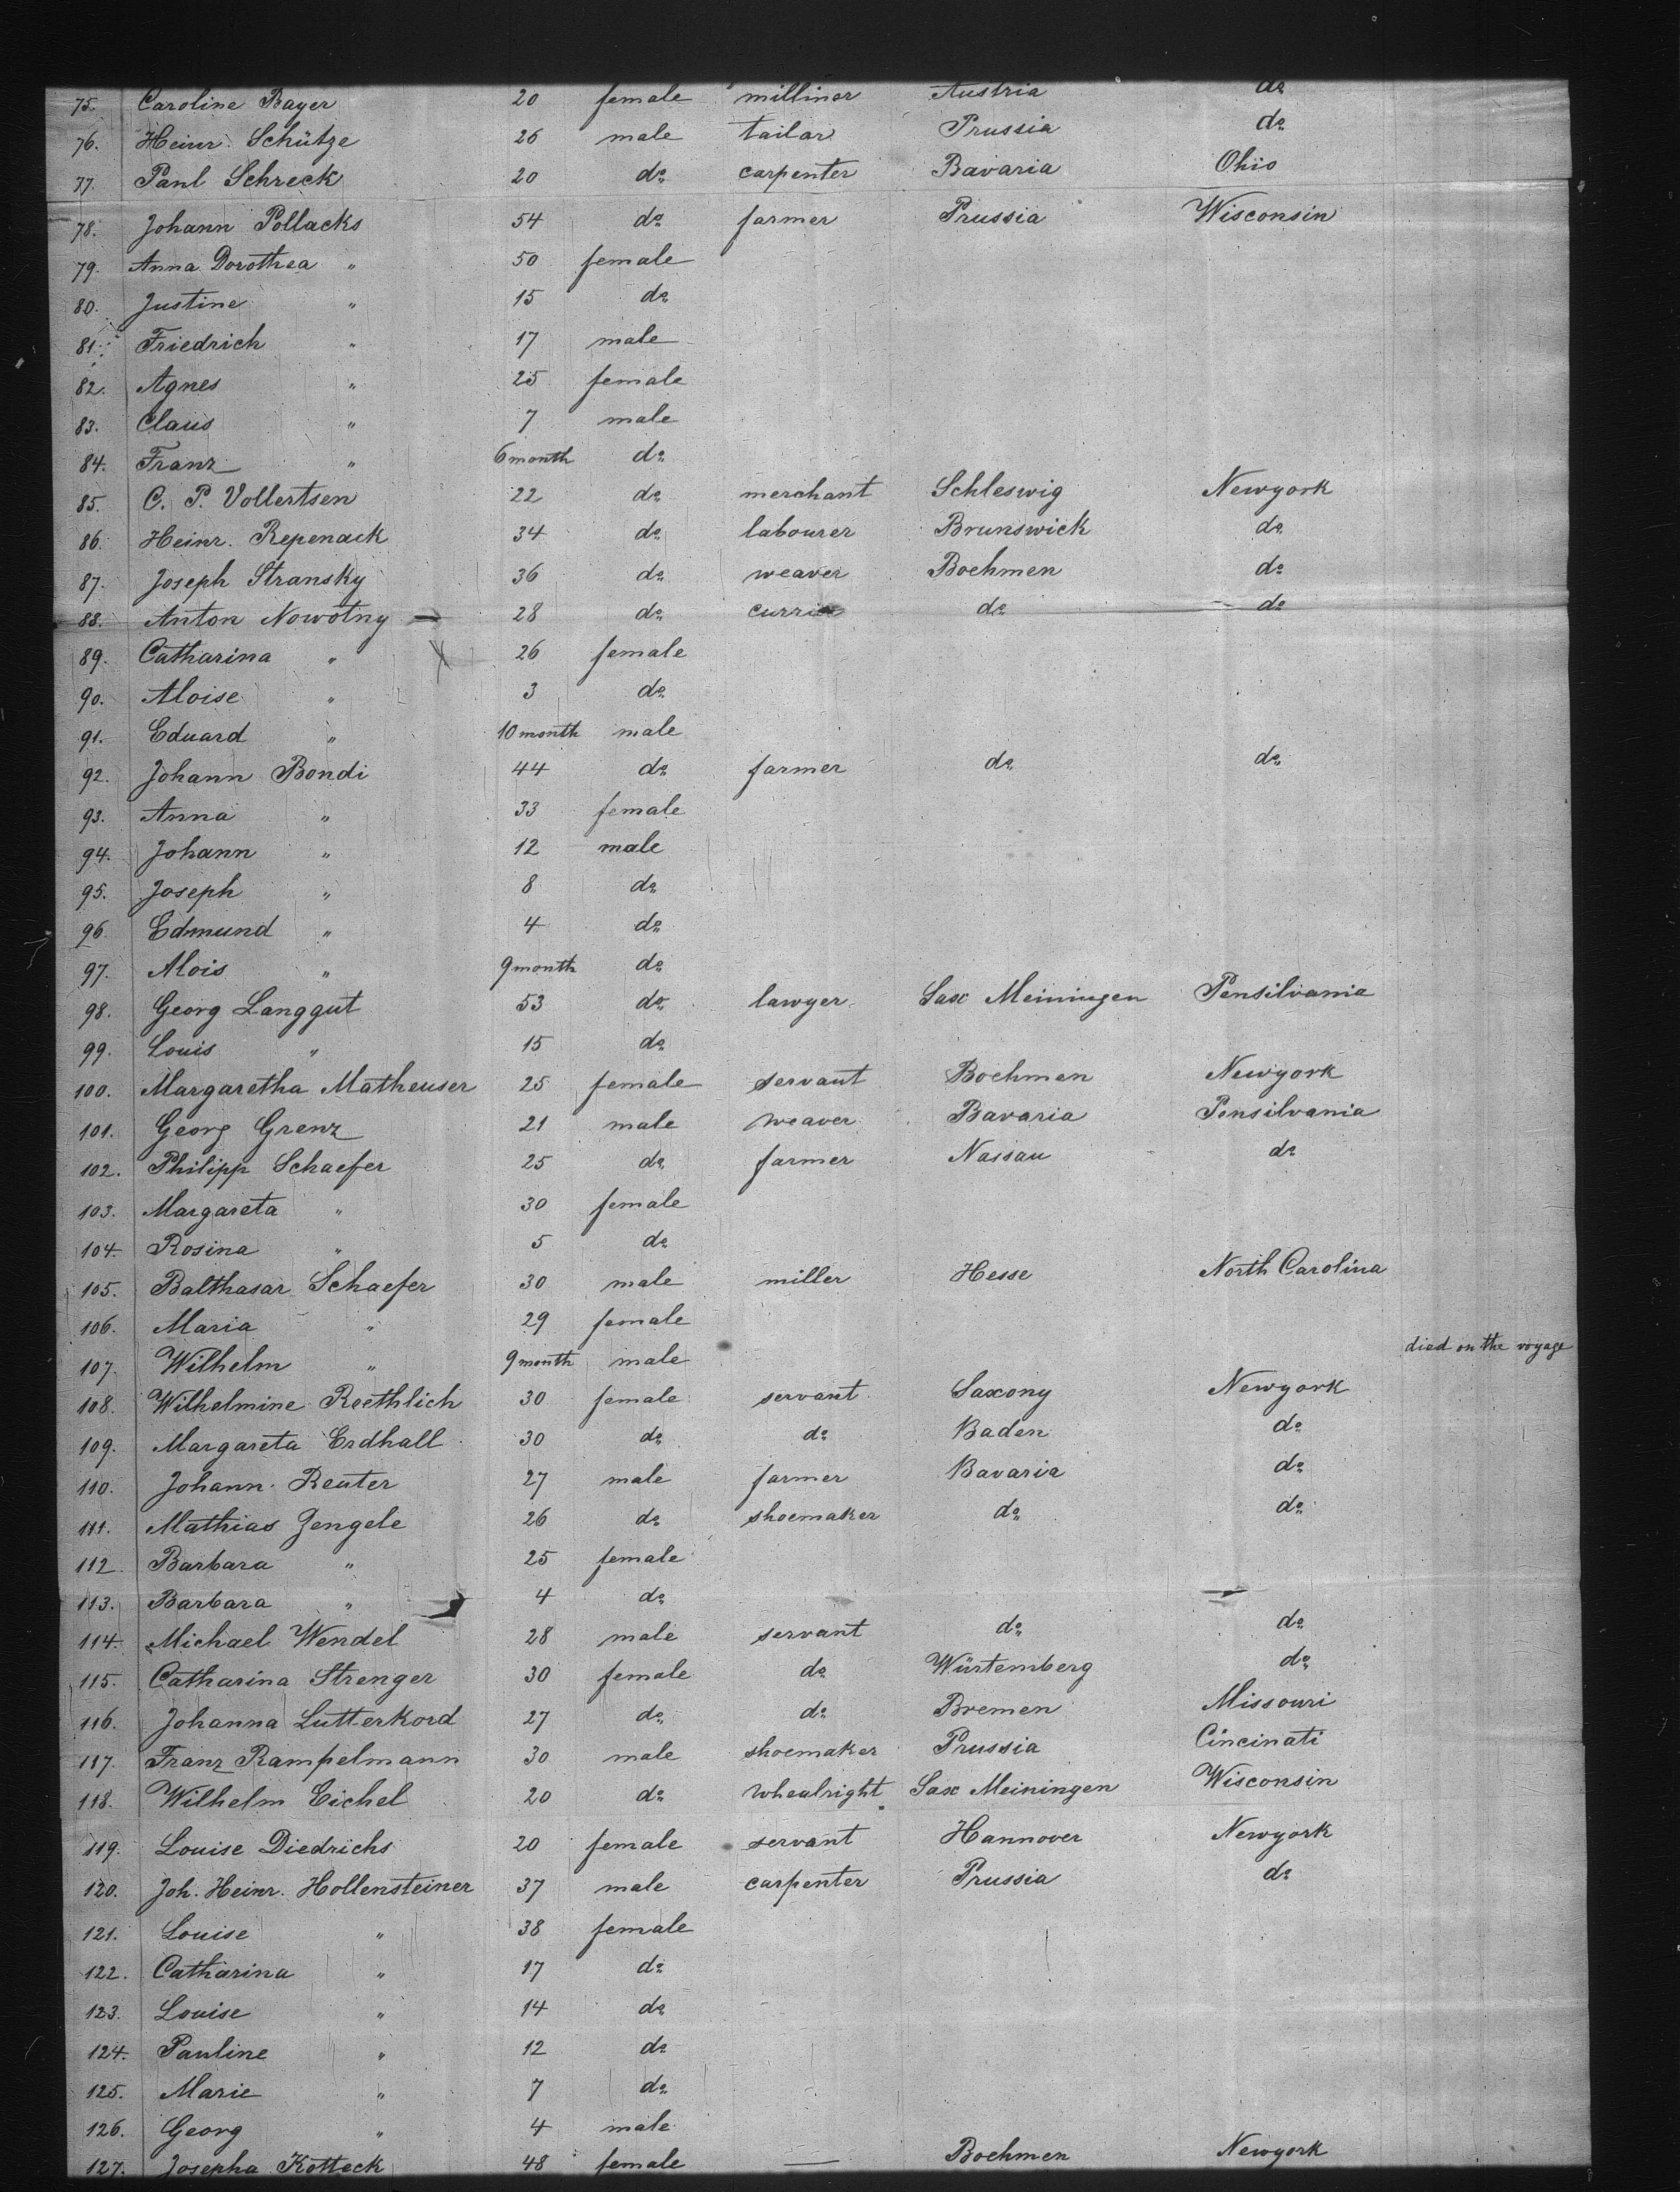 75. Caroline Bayer 20 female milliner Austria do
76. Heinr. Schütze 26 male tailor Prussia do
77. Paul Schreck 20 do carpenter Bavaria Ohio
78. Johann Pollacks 54 do farmer Prussia Wisconsin
79. Anna Dorothea " 50 female
80. Justine " 15 do
81. Friedrich " 17 male
82. Agnes " 25 female
83. Claus " 7 male
84. Franz " 6 month do
85. C. P. Vollertsen 22 do merchant Schleswig Newyork
86. Heinr. Repenack 34 do labourer Brunswick do
87. Joseph Stransky 36 do weaver Boehmen do
88. Anton Nowotny 28 do do do
89. Catharina " 26 female
90. Aloise " 3 do
91. Eduard " 10 month male
92. Johann Bondi 44 do farmer do do
93. Anna " 33 female
94. Johann " 12 male
95. Joseph " 8 do
96. Edmund " 4 do
97. Alois " 9 month do
98. Georg Langgut 53 do lawyer Sax Meiningen Pensilvania
99. Louis " 15 do
100. Margaretha Matheuser 25 female servant Boehmen Newyork
101. Georg Grenz 21 male weaver Bavaria Pensilvania
102. Philipp Schaefer 25 do farmer Nassau do
103. Margareta " 30 female
104. Rosina " 5 do
105. Balthasar Schaefer 30 male miller Hesse North Carolina
106. Maria " 29 female
107. Wilhelm " 9 month male died on the voyage
108. Wilhelmine Roethlich 30 female servant Saxony Newyork
109. Margareta Erdhall 30 do do Baden do
110. Johann Reuter 27 male farmer Bavaria do
111. Mathias Zengele 26 do shoemaker do do
112. Barbara " 25 female
113. Barbara " 4 do
114. Michael Wendel 28 male servant do do
115. Catharina Strenger 30 female do Würtemberg do
116. Johanna Lutterkord 27 do do Bremen Missouri
117. Franz Rampelmann 30 male shoemaker Prussia Cincinati
118. Wilhelm Eichel 20 do whealright Sax Meiningen Wisconsin
119. Louise Diedrichs 20 female servant Hannover Newyork
120. Joh. Heinr. Hollensteiner 37 male carpenter Prussia do
121. Louise " 38 female
122. Catharina " 17 do
123. Louise " 14 do
124. Pauline " 12 do
125. Marie " 7 do
126. Georg " 4 male
127. Josepha Kotteck 48 female — Boehmen Newyork